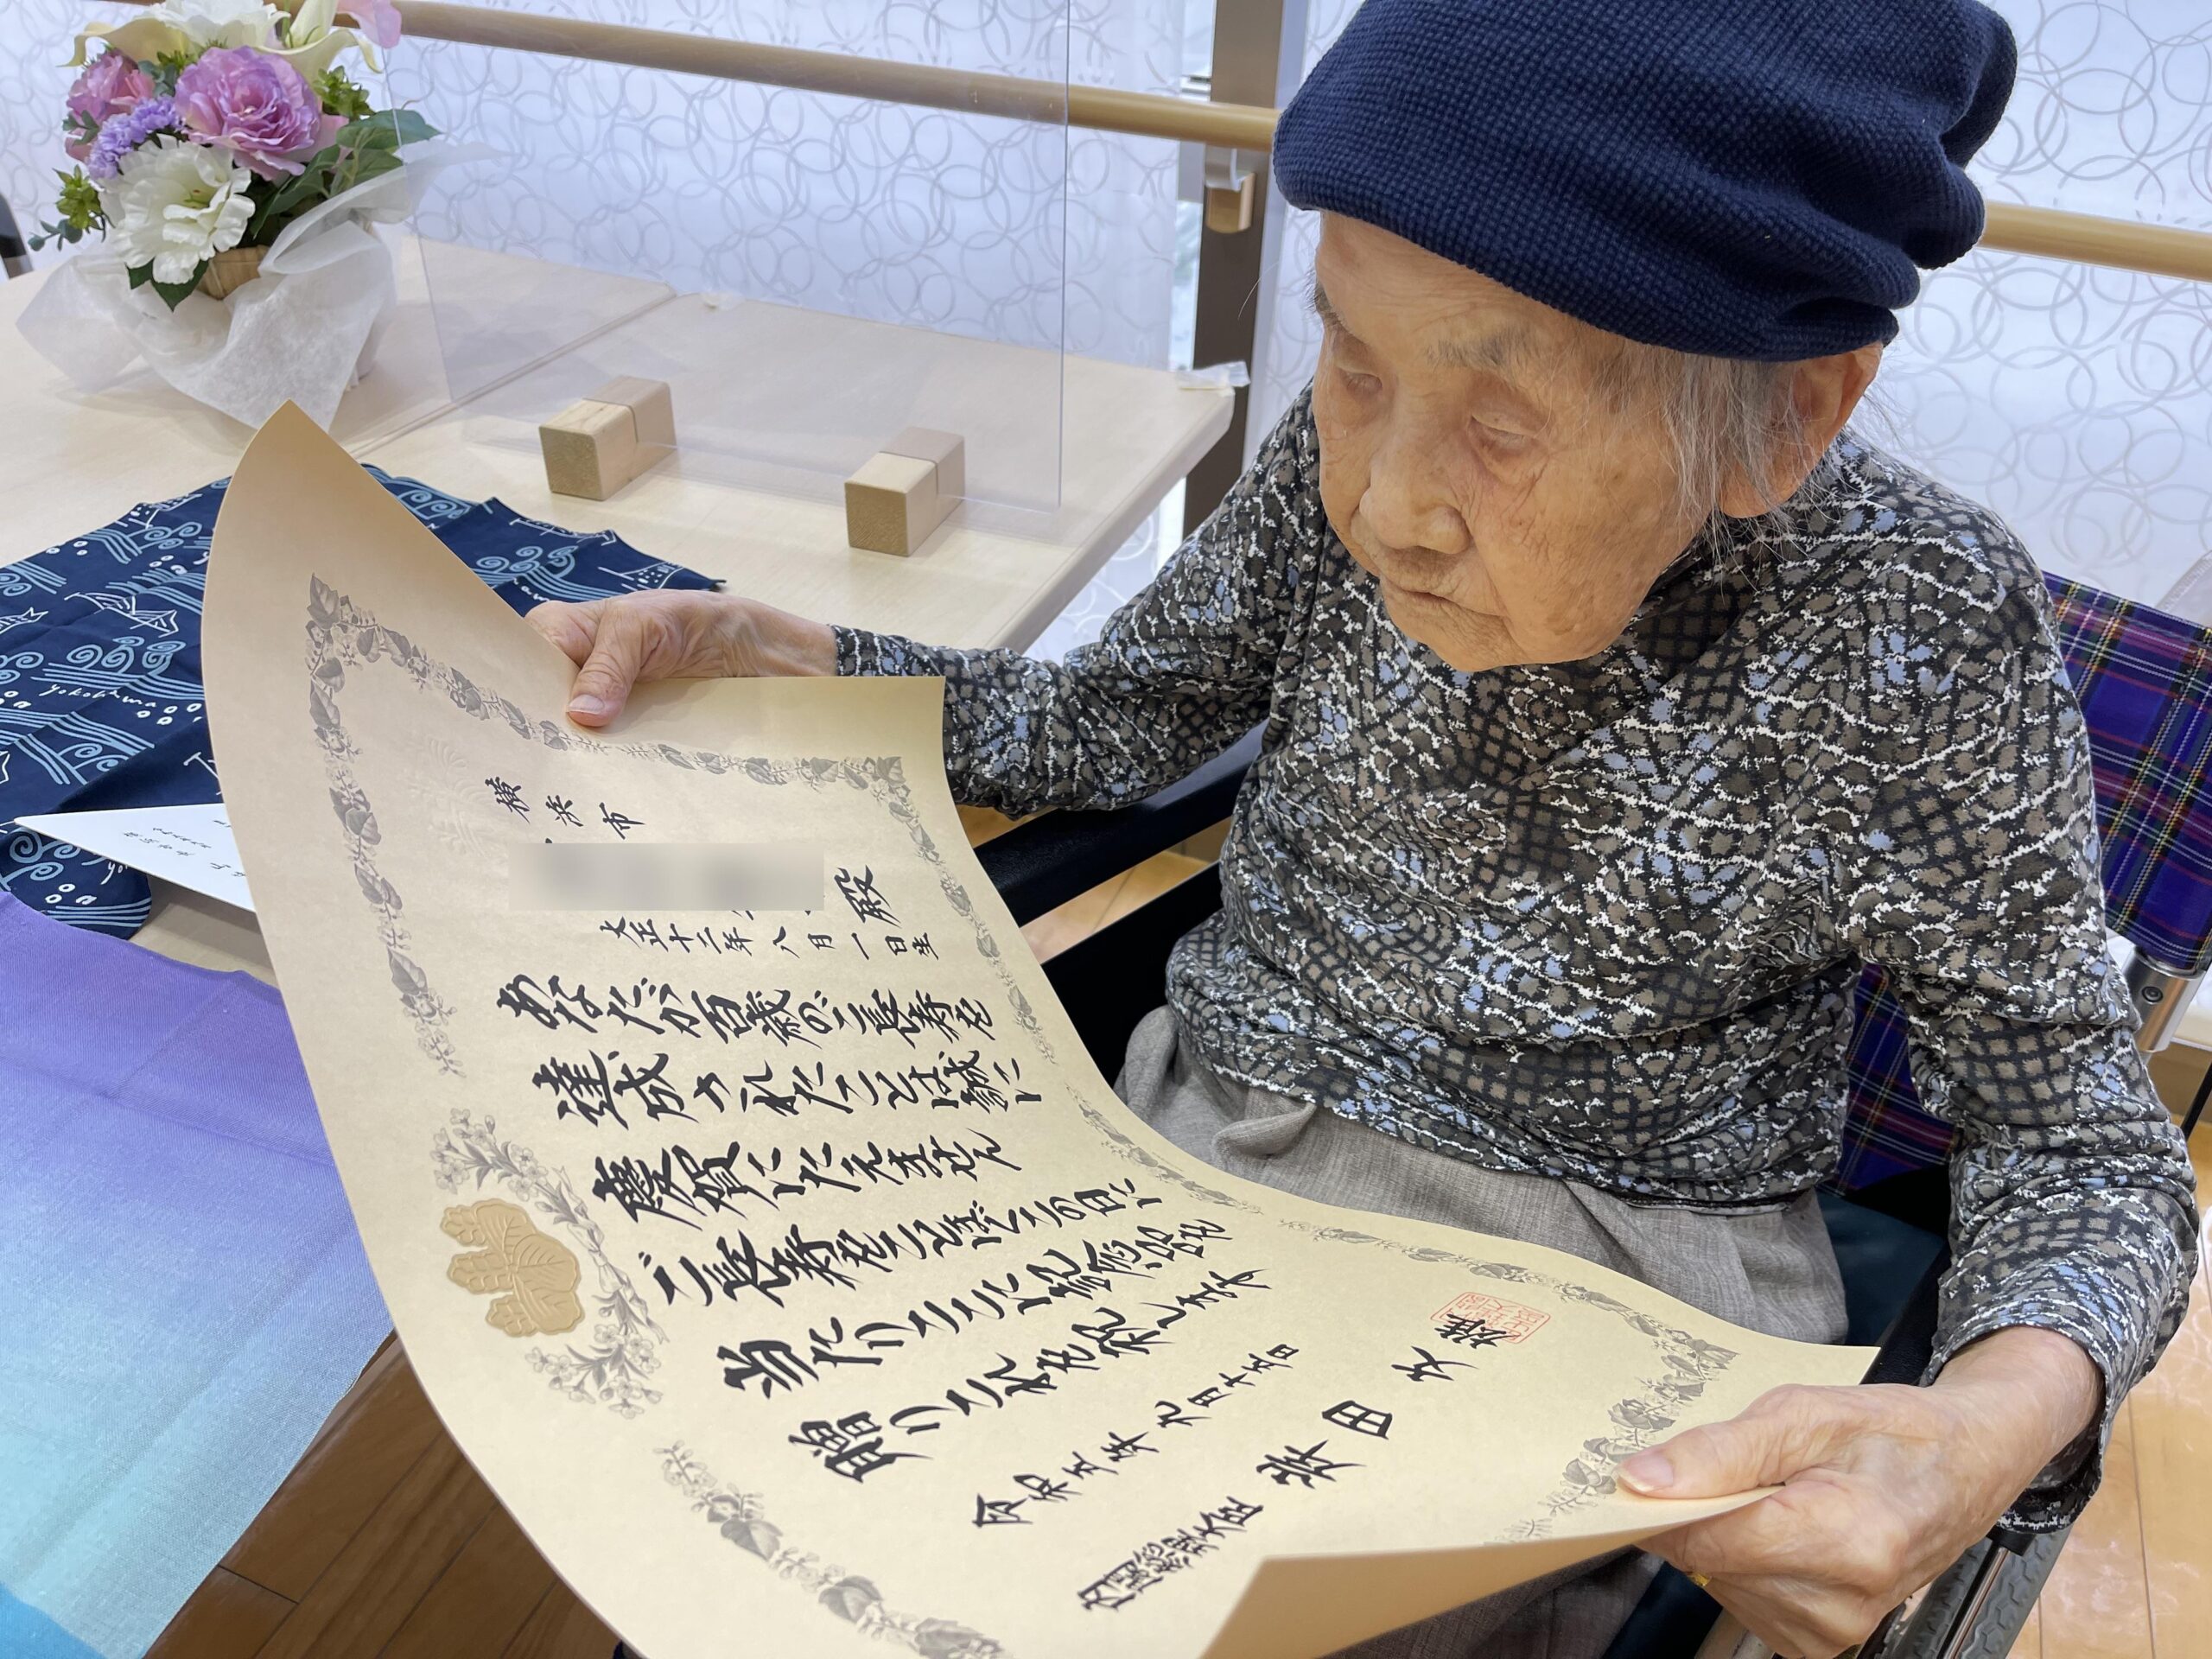 横浜市
殿
大正十二年八月一日生
あなたが百歳のご長寿を
達成されたことは誠に
慶賀にたえません
ご長寿をことほぎこの日に
当たりここに記念品を
贈りこれを祝します
令和五年九月十五日
内閣総理大臣 岸田文雄
yokohama